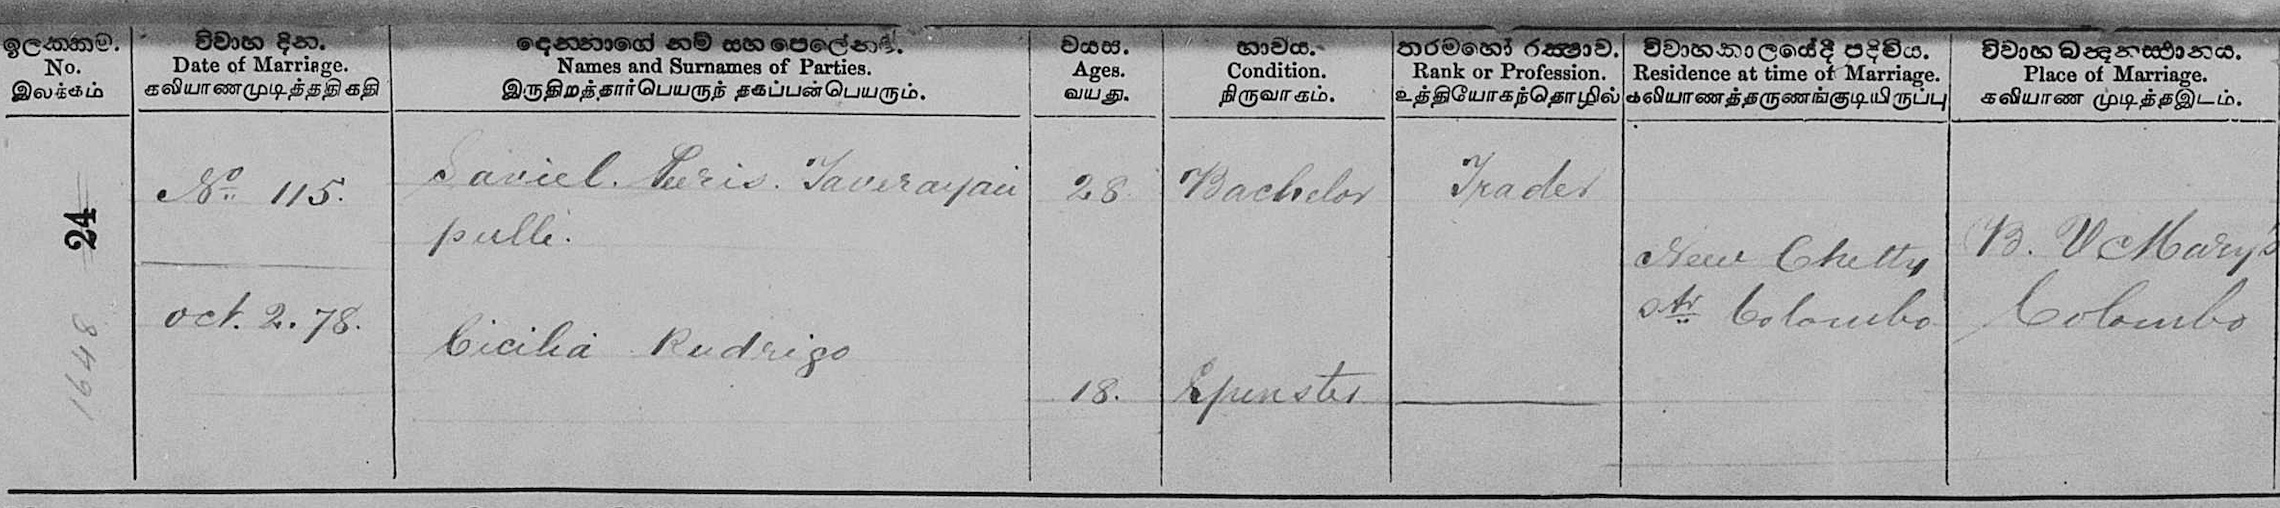 ඉලක්කම. විවාහ දින. දෙන්නාගේ නම් සහ පෙලේනම්. වයස. භාවය. තරමහෝ රක්ෂාව. විවාහකාලයේදී පදිචිය. විවාහ බන්ධනස්ථානය.
No. Date of Marriage. Names and Surnames of Parties. Ages. Condition. Rank or Profession. Residence at time of Marriage. Place of Marriage.
இலக்கம் கலியாணமுடித்ததிகதி இருதிறத்தார்பெயருந் தகப்பன்பெயரும். வயது. நிருவாகம். உத்தியோகந்தொழில் கலியாணத்தருணங்குடியிருப்பு கலியாண முடித்தஇடம்.
24 No 115. Peris. 28 Bachelor Trader
pulle. New Chetty B. V Mary's
Oct. 2. 78. Str Colombo Colombo
1648 Cicilia Rudrigo
18. Spinster